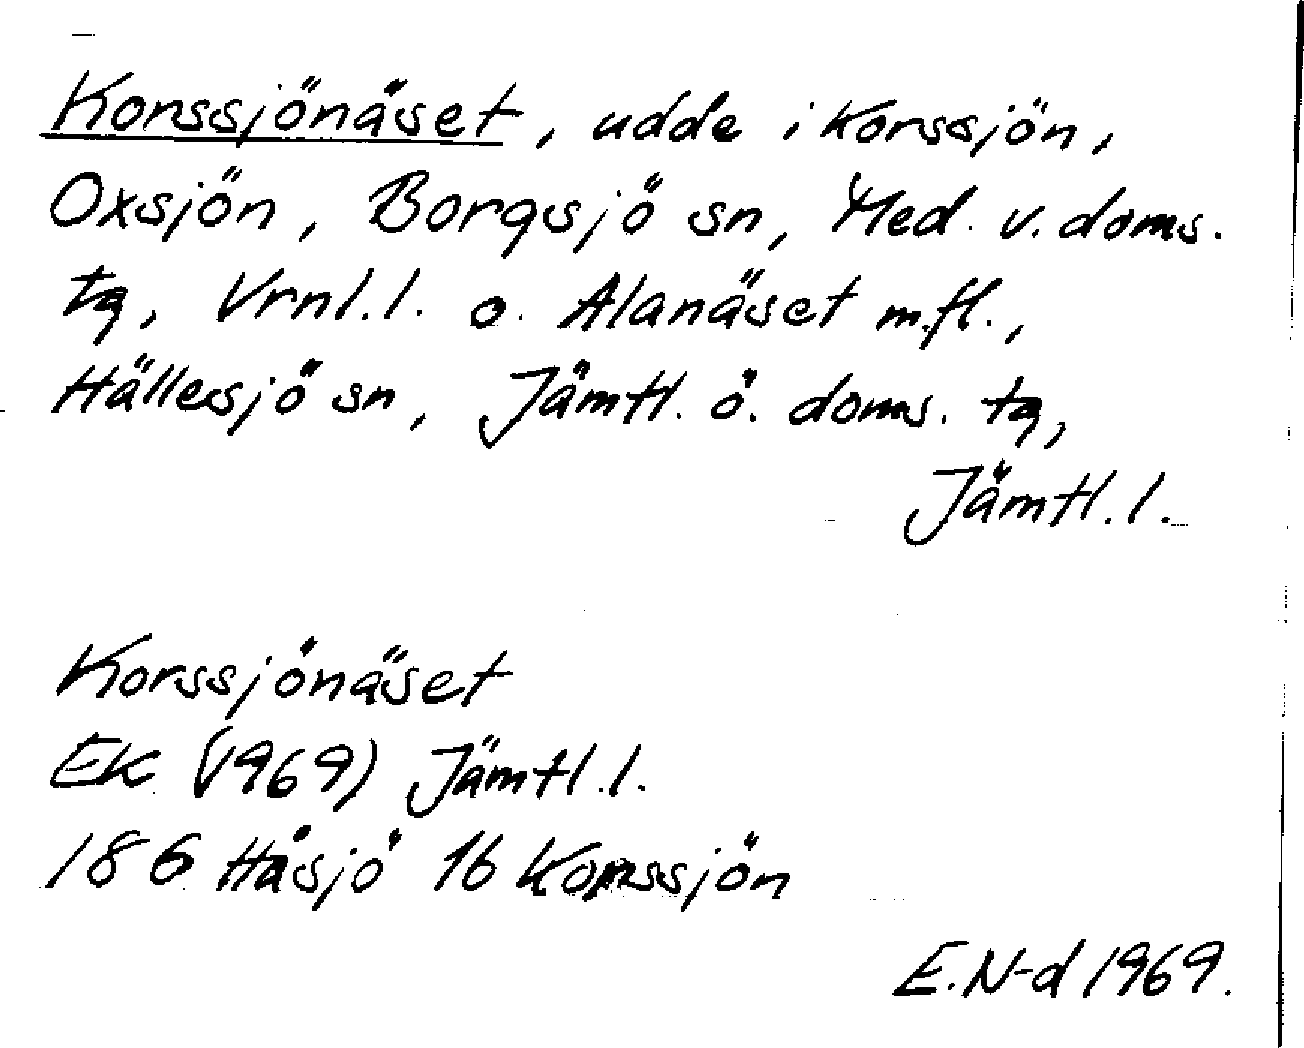 Korssjönäset, udde i Korssjön,
Oxsjön, Borgsjö sn, Med. v. doms.
tg, Vrnl.l. o. Alanäset m.fl.,
Hällesjö sn, Jämtl. ö. doms. tg,
Jämtl.l.
Korssjönäset
EK (1969) Jämtl.l.
186 Håsjö 16 Korssjön
E.N-d 1969.